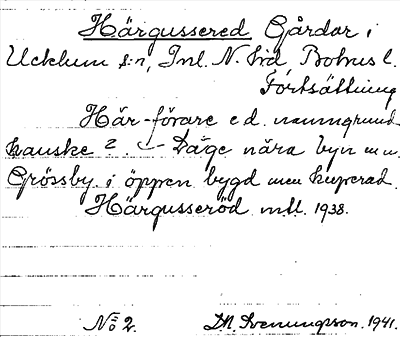 Härgussered Gårdar i
Ucklum s:n, Inl. N. Hd Bohus l.
Fortsättning
Här-förare e d. namngrund
kanske? Läge nära byn m n.
Grössby i öppen bygd men kuperad.
Härgusseröd mtl. 1938.
No 2. M. Svenungsson. 1941.